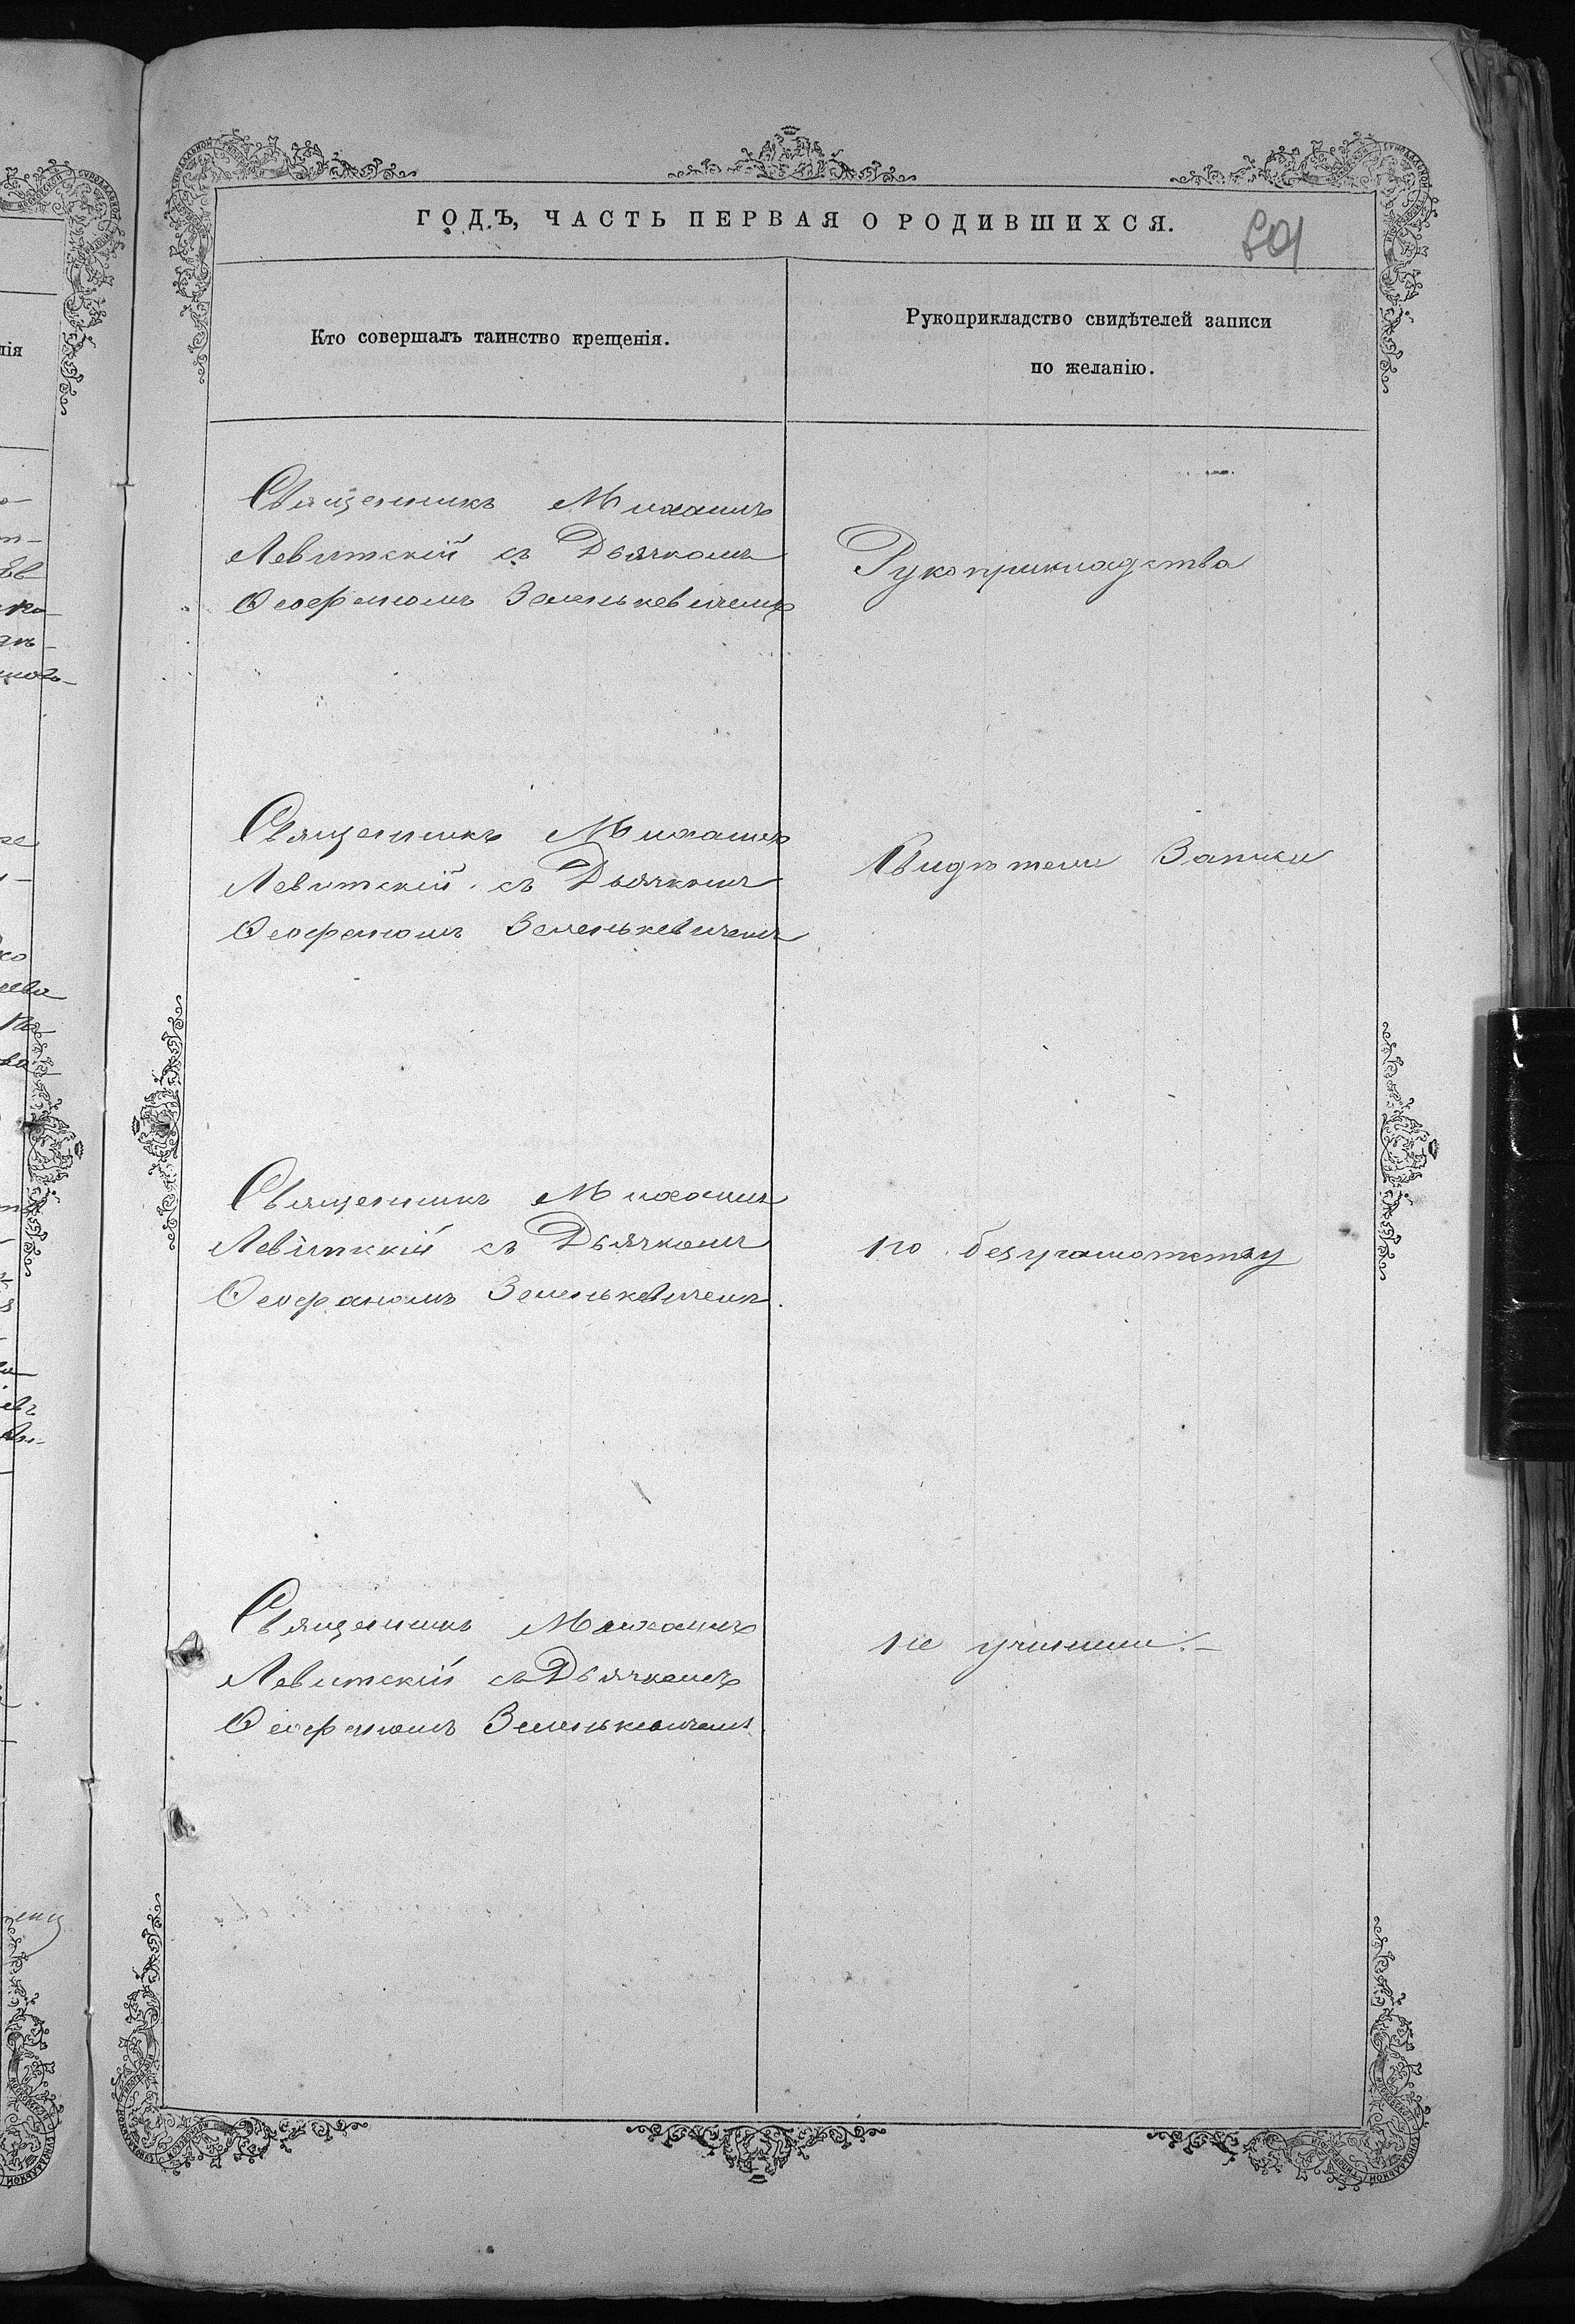 ГОДЪ, ЧАСТЬ ПЕРВАЯ О РОДИВШИХСЯ.
801
Кто совершалъ таинство крещенія.
Рукоприкладство свидѣтелей записи
по желанію.
Священикъ Михаилъ
Левитскій съ Дьячкомъ
Ѳеофаномъ Зеленькевичемъ
Рукоприкладства
Священикъ Михаилъ
Левитскій съ Дьячкомъ
Ѳеофаномъ Зеленькевичемъ
Свидѣтели Записи
Священикъ Михаилъ
Левитскій съ Дьячкомъ
Ѳеофаномъ Зеленькевичемъ.
по безграмотству
Священикъ Михаилъ
Левитскій съ Дьячкомъ
Ѳеофаномъ Зеленькевичемъ
не учинили.